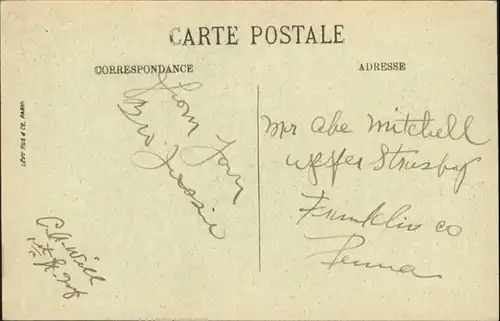 CARTE POSTALE
CORRESPONDANCE
ADRESSE
LEVY FILS & CE, PARIS
From Your
Bro. Jessie
Mr Abe Mitchell
upper Strasburg
Franklin co
Penna